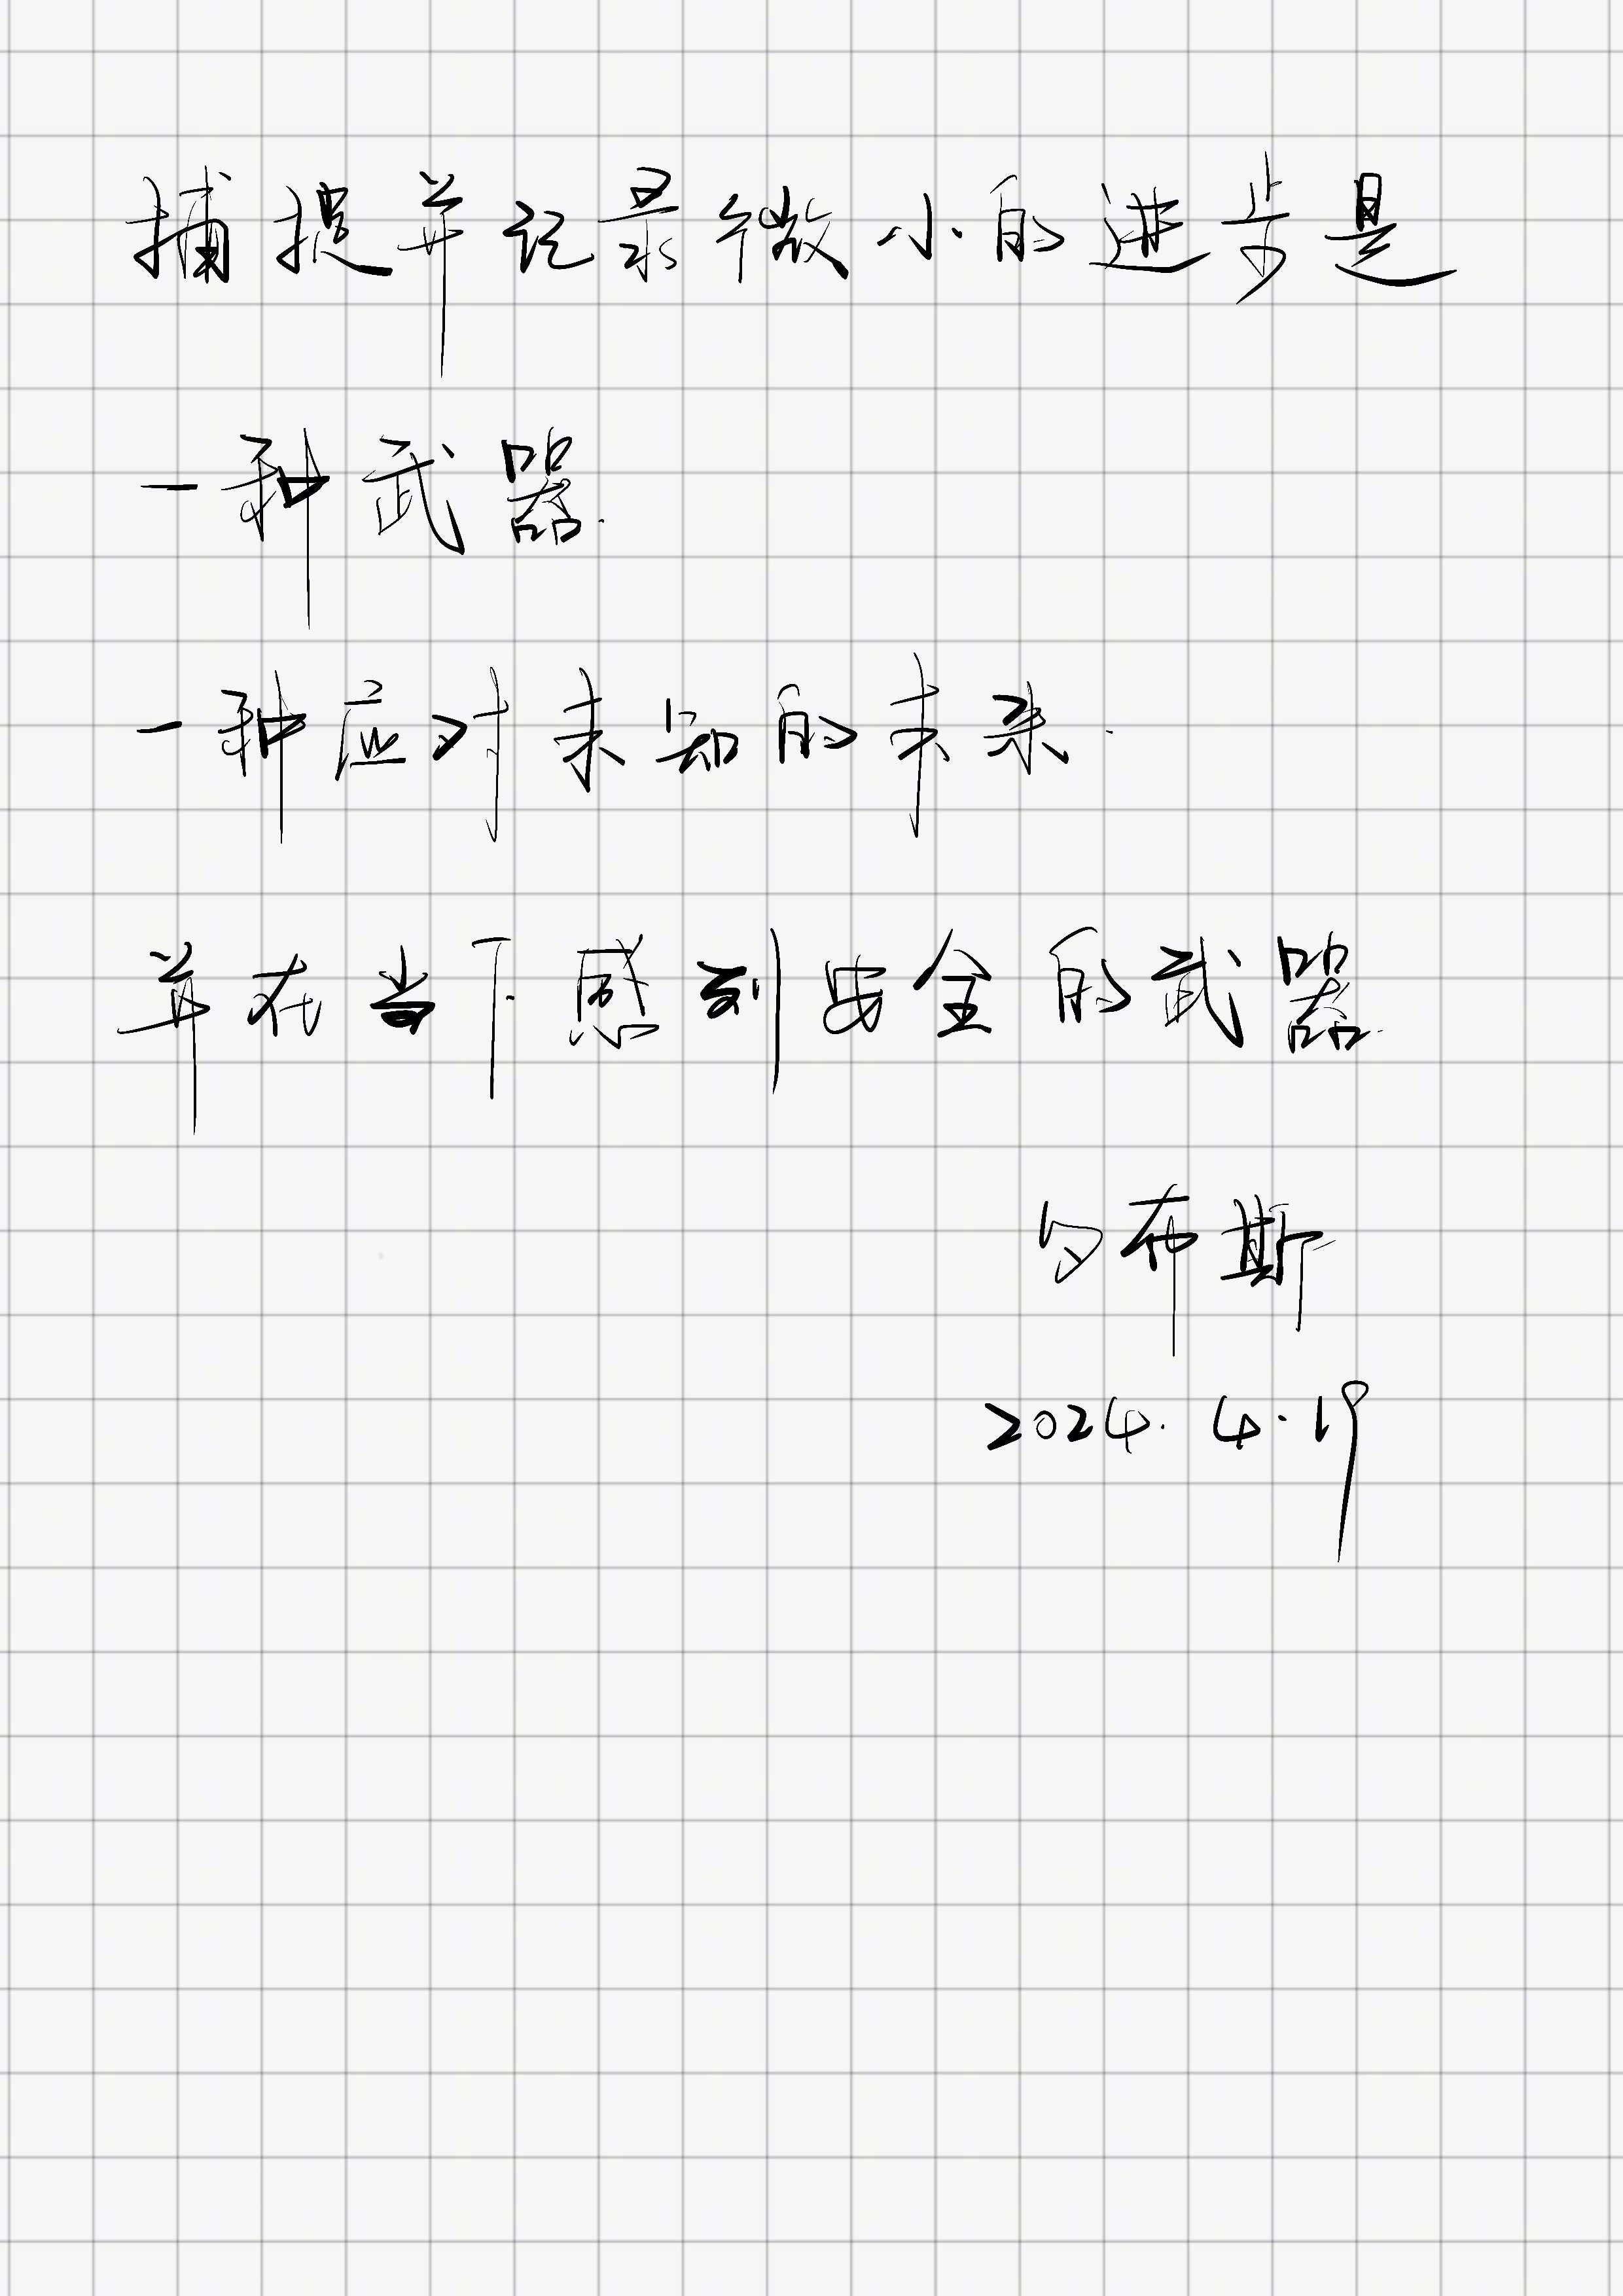 捕捉并记录微小的进步是
一种武器.
一种应对未知的未来.
并在当下感到安全的武器.
布斯
2024. 4. 19